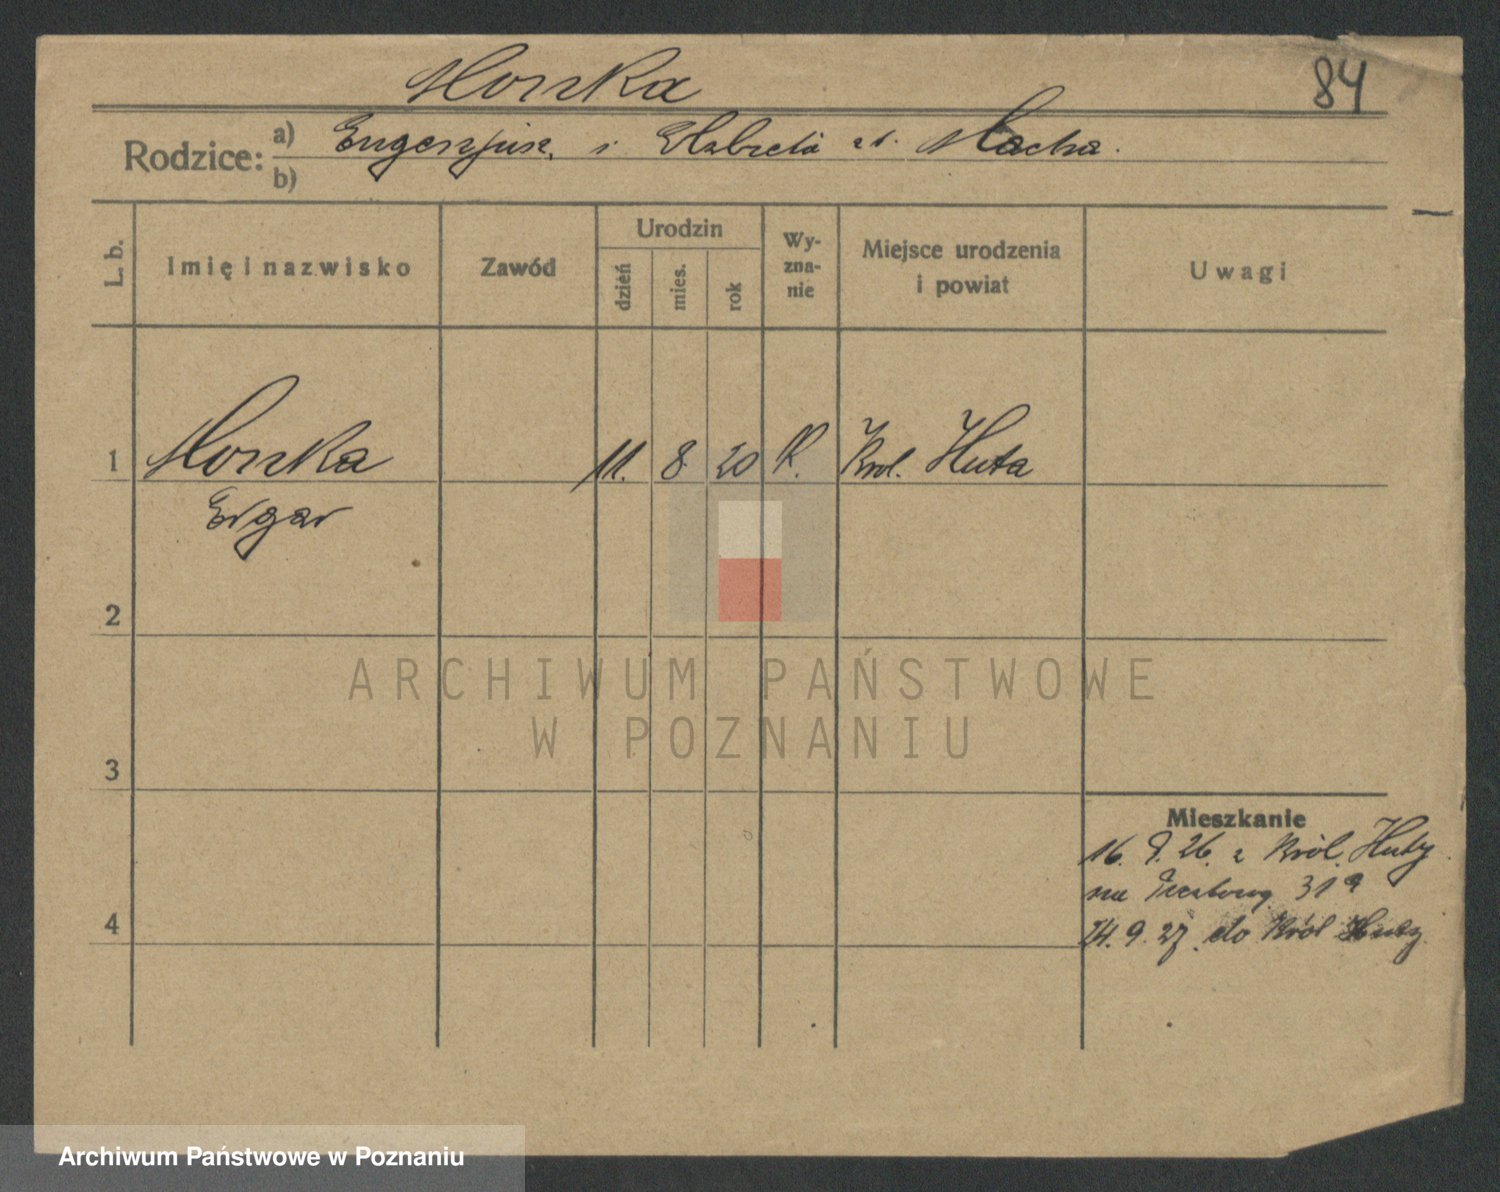 Monka
84
Rodzice:
a) Eugenjusz i Elżbieta zd. Macha.
b)
L. b.
Imię i nazwisko
Zawód
Urodzin
dzień
mies.
rok
Wy-
zna-
nie
Miejsce urodzenia
i powiat
Uwagi
1 Monka 11. 8. 20 K. Król. Huta
2
3
4
Mieszkanie
16. 9. 26. z Król. Huty
na 31
24. 9. 27. do Król Huty
ARCHIWUM PAŃSTWOWE
W POZNANIU
Archiwum Państwowe w Poznaniu